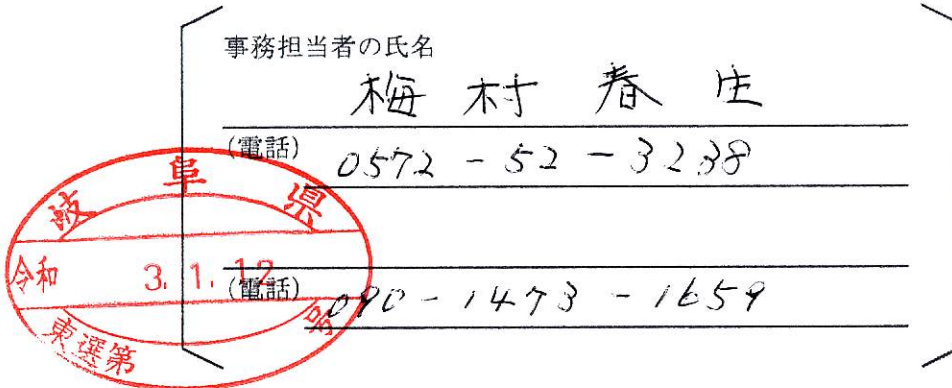 事務担当者の氏名
梅村春生
(電話) 0572-52-3238
(電話) 090-1473-1659
岐阜県
令和 3.1.12
東選第 号